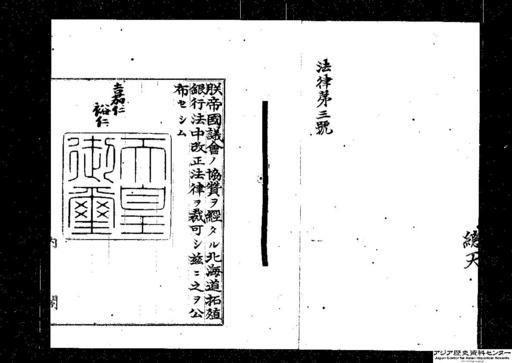 法律第三號
朕帝國議會ノ協賛ヲ經タル北海道拓殖
銀行法中改正法律ヲ裁可シ茲ニ之ヲ公
布セシム
嘉仁
裕仁
天皇
御璽
内閣
アジア歴史資料センター
Japan Center for Asian Historical Records